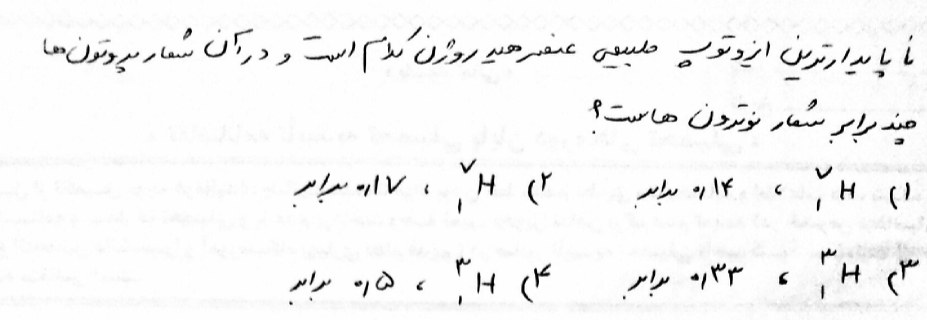 ناپایدارترین ایزوتوپ طبیعی عنصر هیدروژن کدام است و در آن شمار پروتون‌ها
چند برابر شمار نوترون هاست؟
۱) ⁷₁H ، ۰٫۱۴ برابر ۲) ⁷₁H ، ۰٫۱۷ برابر
۳) ³₁H ، ۰٫۳۳ برابر ۴) ³₁H ، ۰٫۵ برابر